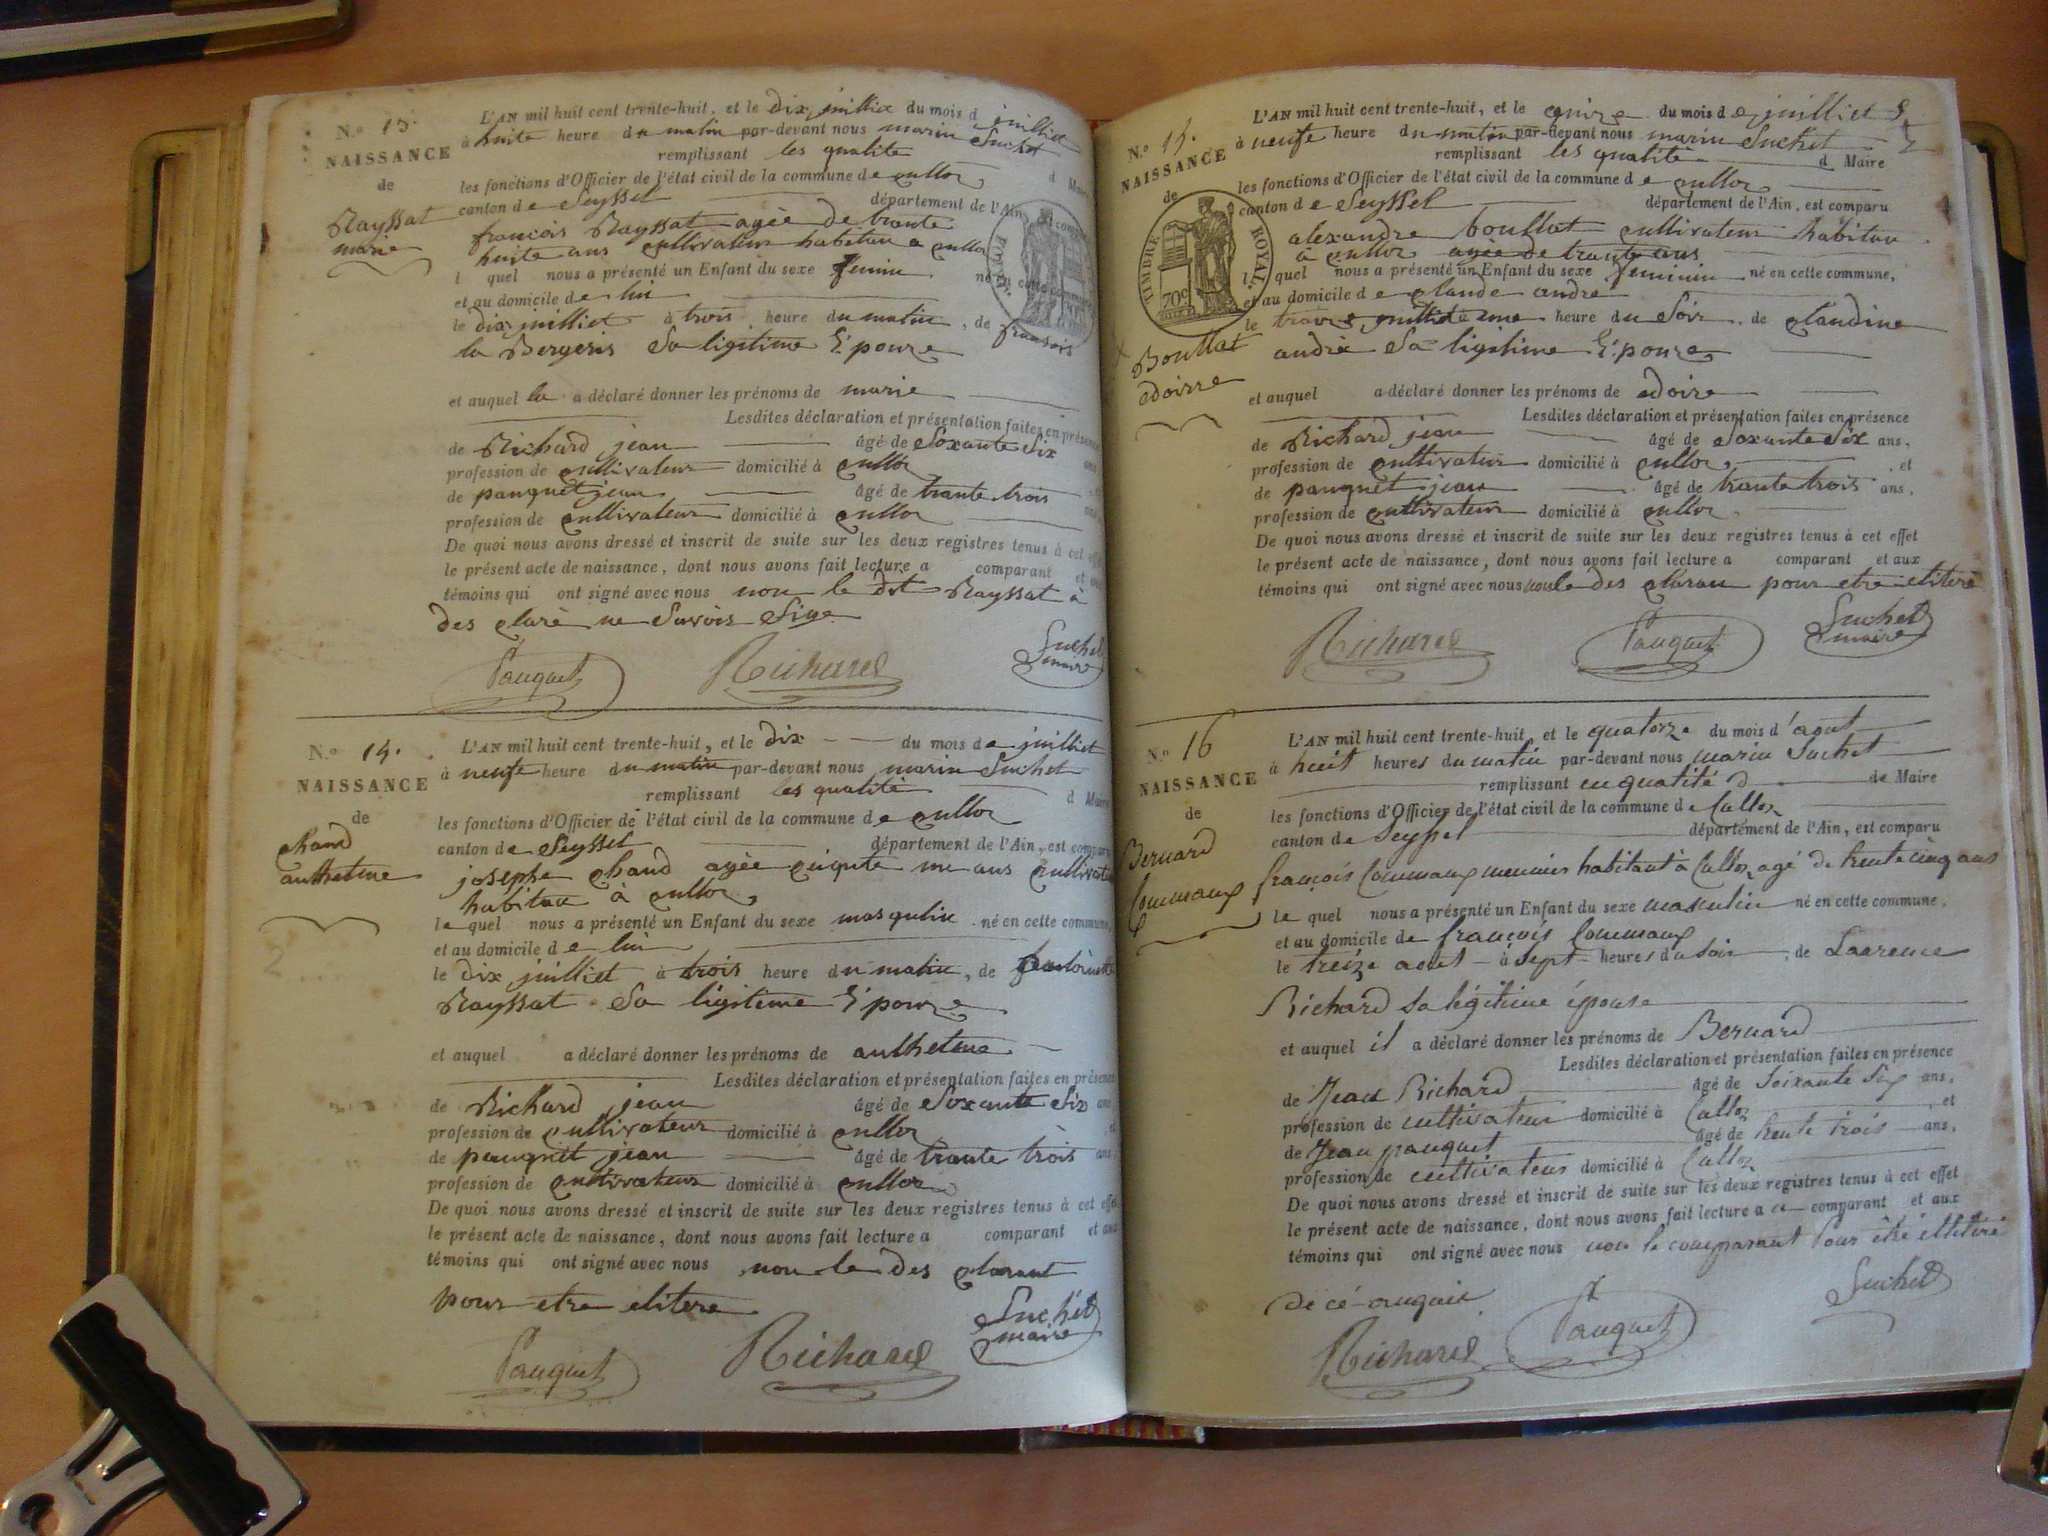 N.o 13.
NAISSANCE
de
Rayssat
marie
L'AN mil huit cent trente-huit, et le dix juilliet du mois d juilliet
à huite heure du matin par-devant nous marin Suchet
remplissant les qualite d Maire
les fonctions d'Officier de l'état civil de la commune de culloz
canton de Seyssel département de l'Ain, est comparu
francois Rayssat agée de trante
huite ans cultivateur habitau a culloz
l quel nous a présenté un Enfant du sexe feminin né en cette commune
et au domicile de lui
le dix juilliet à trois heure du matin, de fransois
la Bergeris Sa ligitime Epouze
et auquel la a déclaré donner les prénoms de marie
Lesdites déclaration et présentation faites en présence
de Richard jean âgé de Soxante Six ans
profession de cultivateur domicilié à culloz
de pauquet jean âgé de trante trois ans
profession de cultivateur domicilié à culloz
De quoi nous avons dressé et inscrit de suite sur les deux registres tenus à cet effet
le présent acte de naissance, dont nous avons fait lecture a comparant et aux
témoins qui ont signé avec nous non le dit Rayssat à
des claré ne Savois Sige
Pauquet Richard Suchet
maire
N.o 14.
NAISSANCE
de
chard
anthelme
L'AN mil huit cent trente-huit, et le dix du mois de juilliet
à neufe heure du matin par-devant nous marin Suchet
remplissant les qualite d Maire
les fonctions d'Officier de l'état civil de la commune de culloz
canton de Seyssel département de l'Ain, est comparu
josephe chard agée ciqute une ans cultivateur
habitau à culloz
le quel nous a présenté un Enfant du sexe masqulin né en cette commune,
et au domicile de lui
le dix juilliet à trois heure du matin, de
Rayssat Sa ligitime Epouze
et auquel a déclaré donner les prénoms de anthelme
Lesdites déclaration et présentation faites en présence
de Richard jean âgé de Soxante Six ans
profession de cultivateur domicilié à culloz et
de pauquet jean âgé de trante trois ans
profession de cultivateur domicilié à culloz
De quoi nous avons dressé et inscrit de suite sur les deux registres tenus à cet effet
le présent acte de naissance, dont nous avons fait lecture a comparant et aux
témoins qui ont signé avec nous non le des clarant
pour etre elitere
Pauquet Richard Suchet
maire
N.o 15.
NAISSANCE
de
TIMBRE ROYAL.
70c
Boullat
edoirre
L'AN mil huit cent trente-huit, et le quize du mois de juilliet
à neufe heure du matin par-devant nous marin Suchet
remplissant les qualite d Maire
les fonctions d'Officier de l'état civil de la commune de culloz
canton de Seyssel département de l'Ain, est comparu
alexandre boullat cultivateur habitau
à culloz agée de trante ans
l quel nous a présenté un Enfant du sexe feminin né en cette commune,
et au domicile de claude andre
le juilliet à une heure du Soir, de claudine
andrè Sa ligitime Epouze
et auquel a déclaré donner les prénoms de edoire
Lesdites déclaration et présentation faites en présence
de Richard jean âgé de Soxante Six ans,
profession de cultivateur domicilié à culloz et
de pauquet jean âgé de trante trois ans,
profession de cultivateur domicilié à culloz
De quoi nous avons dressé et inscrit de suite sur les deux registres tenus à cet effet
le présent acte de naissance, dont nous avons fait lecture a comparant et aux
témoins qui ont signé avec nous non le des claran pour etre eliterè
Richard Pauquet Suchet
maire
N.o 16
NAISSANCE
de
Bernard
L'AN mil huit cent trente-huit, et le quatorze du mois d'aout
à huit heures du matin par-devant nous marin Suchet
remplissant en qualité d de Maire
les fonctions d'Officier de l'état civil de la commune de Culloz
canton de Seyssel département de l'Ain, est comparu
françois meunier habitant à Culloz agé de trente cinq ans
le quel nous a présenté un Enfant du sexe masculin né en cette commune,
et au domicile de françois
le treize aout à sept heures du soir, de Laurence
Richard sa légitime épouse
et auquel il a déclaré donner les prénoms de Bernard
Lesdites déclaration et présentation faites en présence
de Jean Richard âgé de soixante six ans,
profession de cultivateur domicilié à Culloz et
de Jean pauquet âgé de trente trois ans,
profession de cultivateur domicilié à Culloz
De quoi nous avons dressé et inscrit de suite sur les deux registres tenus à cet effet
le présent acte de naissance, dont nous avons fait lecture a u comparant et aux
témoins qui ont signé avec nous non le comparant pour être illitéré
de cé
Richard Pauquet Suchet